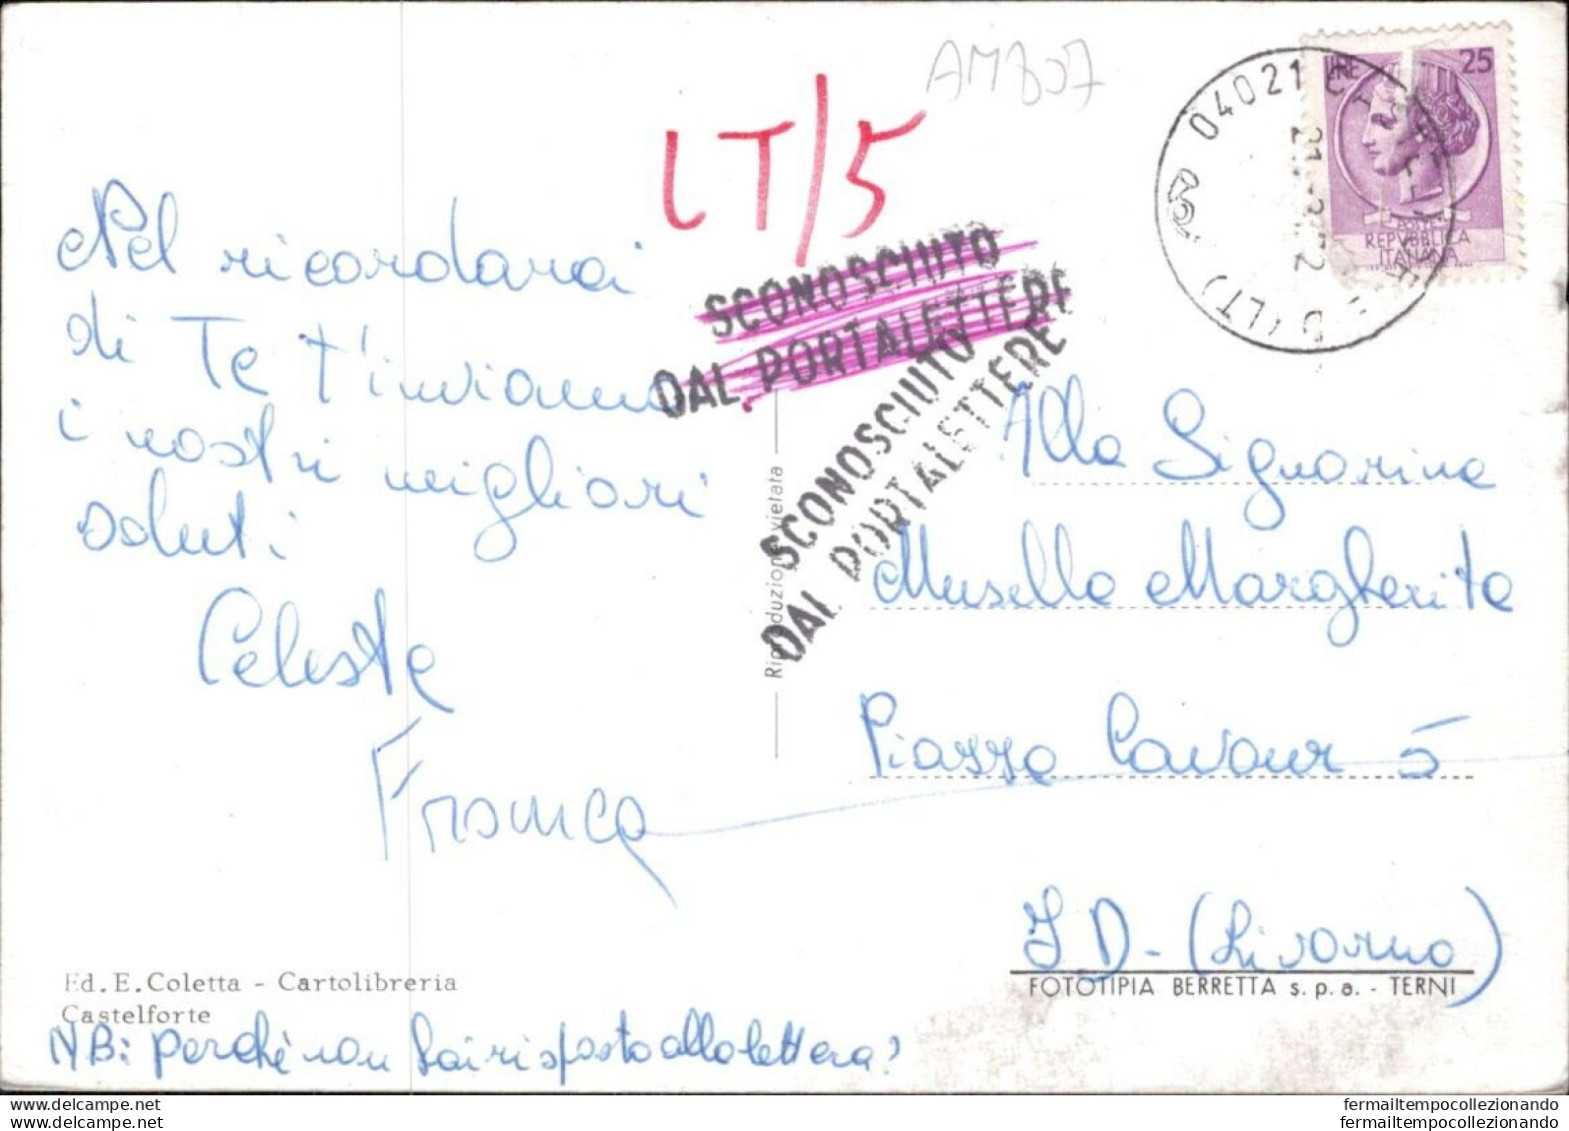 AM807
LT/5
04021 CASTELFORTE (LT)
LIRE 25
POSTE
REPVBBLICA
ITALIANA
SCONOSCIUTO
DAL PORTALETTERE
SCONOSCIUTO
DAL PORTALETTERE
Nel ricordarci
di Te t'inviamo
i nostri migliori
saluti
Celeste
Franca
Riproduzione vietata
Alla Signorina
Musella Margherita
Piazza Cavour 5
(Livorno)
FOTOTIPIA BERRETTA s.p.a. - TERNI
Ed. E. Coletta - Cartolibreria
Castelforte
NB: perchè non hai risposto alla lettera?
Delcampe.net
fermailtempocollezionando
fermailtempocollezionando